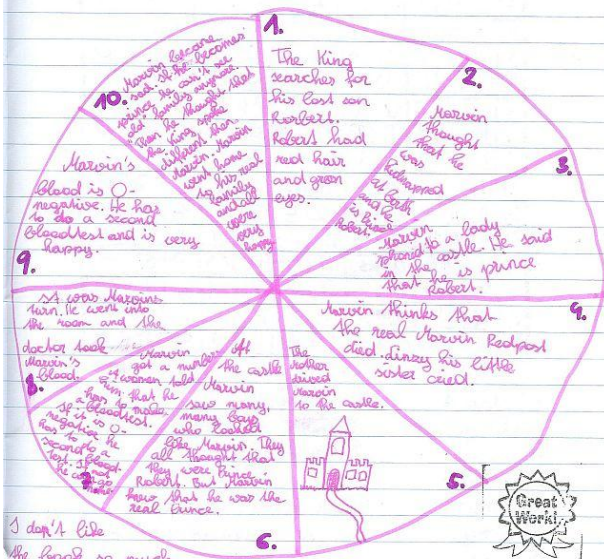 1.
The King
searches for
his lost son
Robert.
Robert had
red hair
and green
eyes.
2.
Marvin
thought
that he
was
kidnapped
at birth
and he
is Prince
Robert.
3.
Marvin
phoned to a lady
in the castle. He said
that he is prince
Robert.
4.
Marvin thinks that
the real Marvin Redpost
died. Linzy his little
sister cried.
5.
The
mother
drived
Marvin
to the castle.
6.
At
the castle
Marvin
saw many,
many boys
who looked
like Marvin. They
all thought that
they were Prince
Robert. But Marvin
knew that he was the
real Prince.
7.
Marvin
got a number.
A women told
him that he
has to make
a bloodtest.
If it is O-
negative he
has to do a
second blood-
test. If
he can go
home.
8.
It was Marvins
turn. He went into
the room and the
doctor took
Marvin's
blood.
9.
Marvin's
blood is O-
negative. He has
to do a second
bloodtest and is very
happy.
10.
Marvin became
sad. If he becomes
prince he can't see
"old" family anymore.
Then he thought that
the King spoke
different than
Marvin. Marvin
went home
to his real
family
and all
were
very
happy.
I don't like
the book so much
Great
Work!